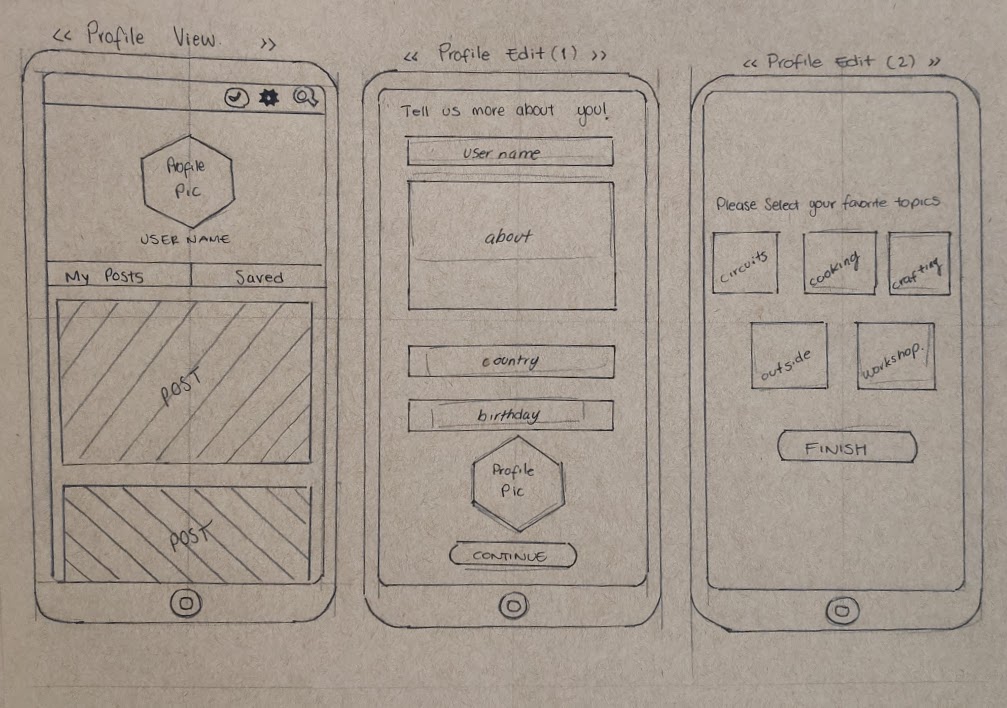 << Profile View. >>
Profile
Pic
USER NAME
My Posts
Saved
POST
POST
<< Profile Edit (1) >>
Tell us more about you!
User name
about
country
birthday
Profile
Pic
CONTINUE
<< Profile Edit (2) >>
Please Select your favorite topics
circuits
cooking
crafting
outside
workshop.
FINISH